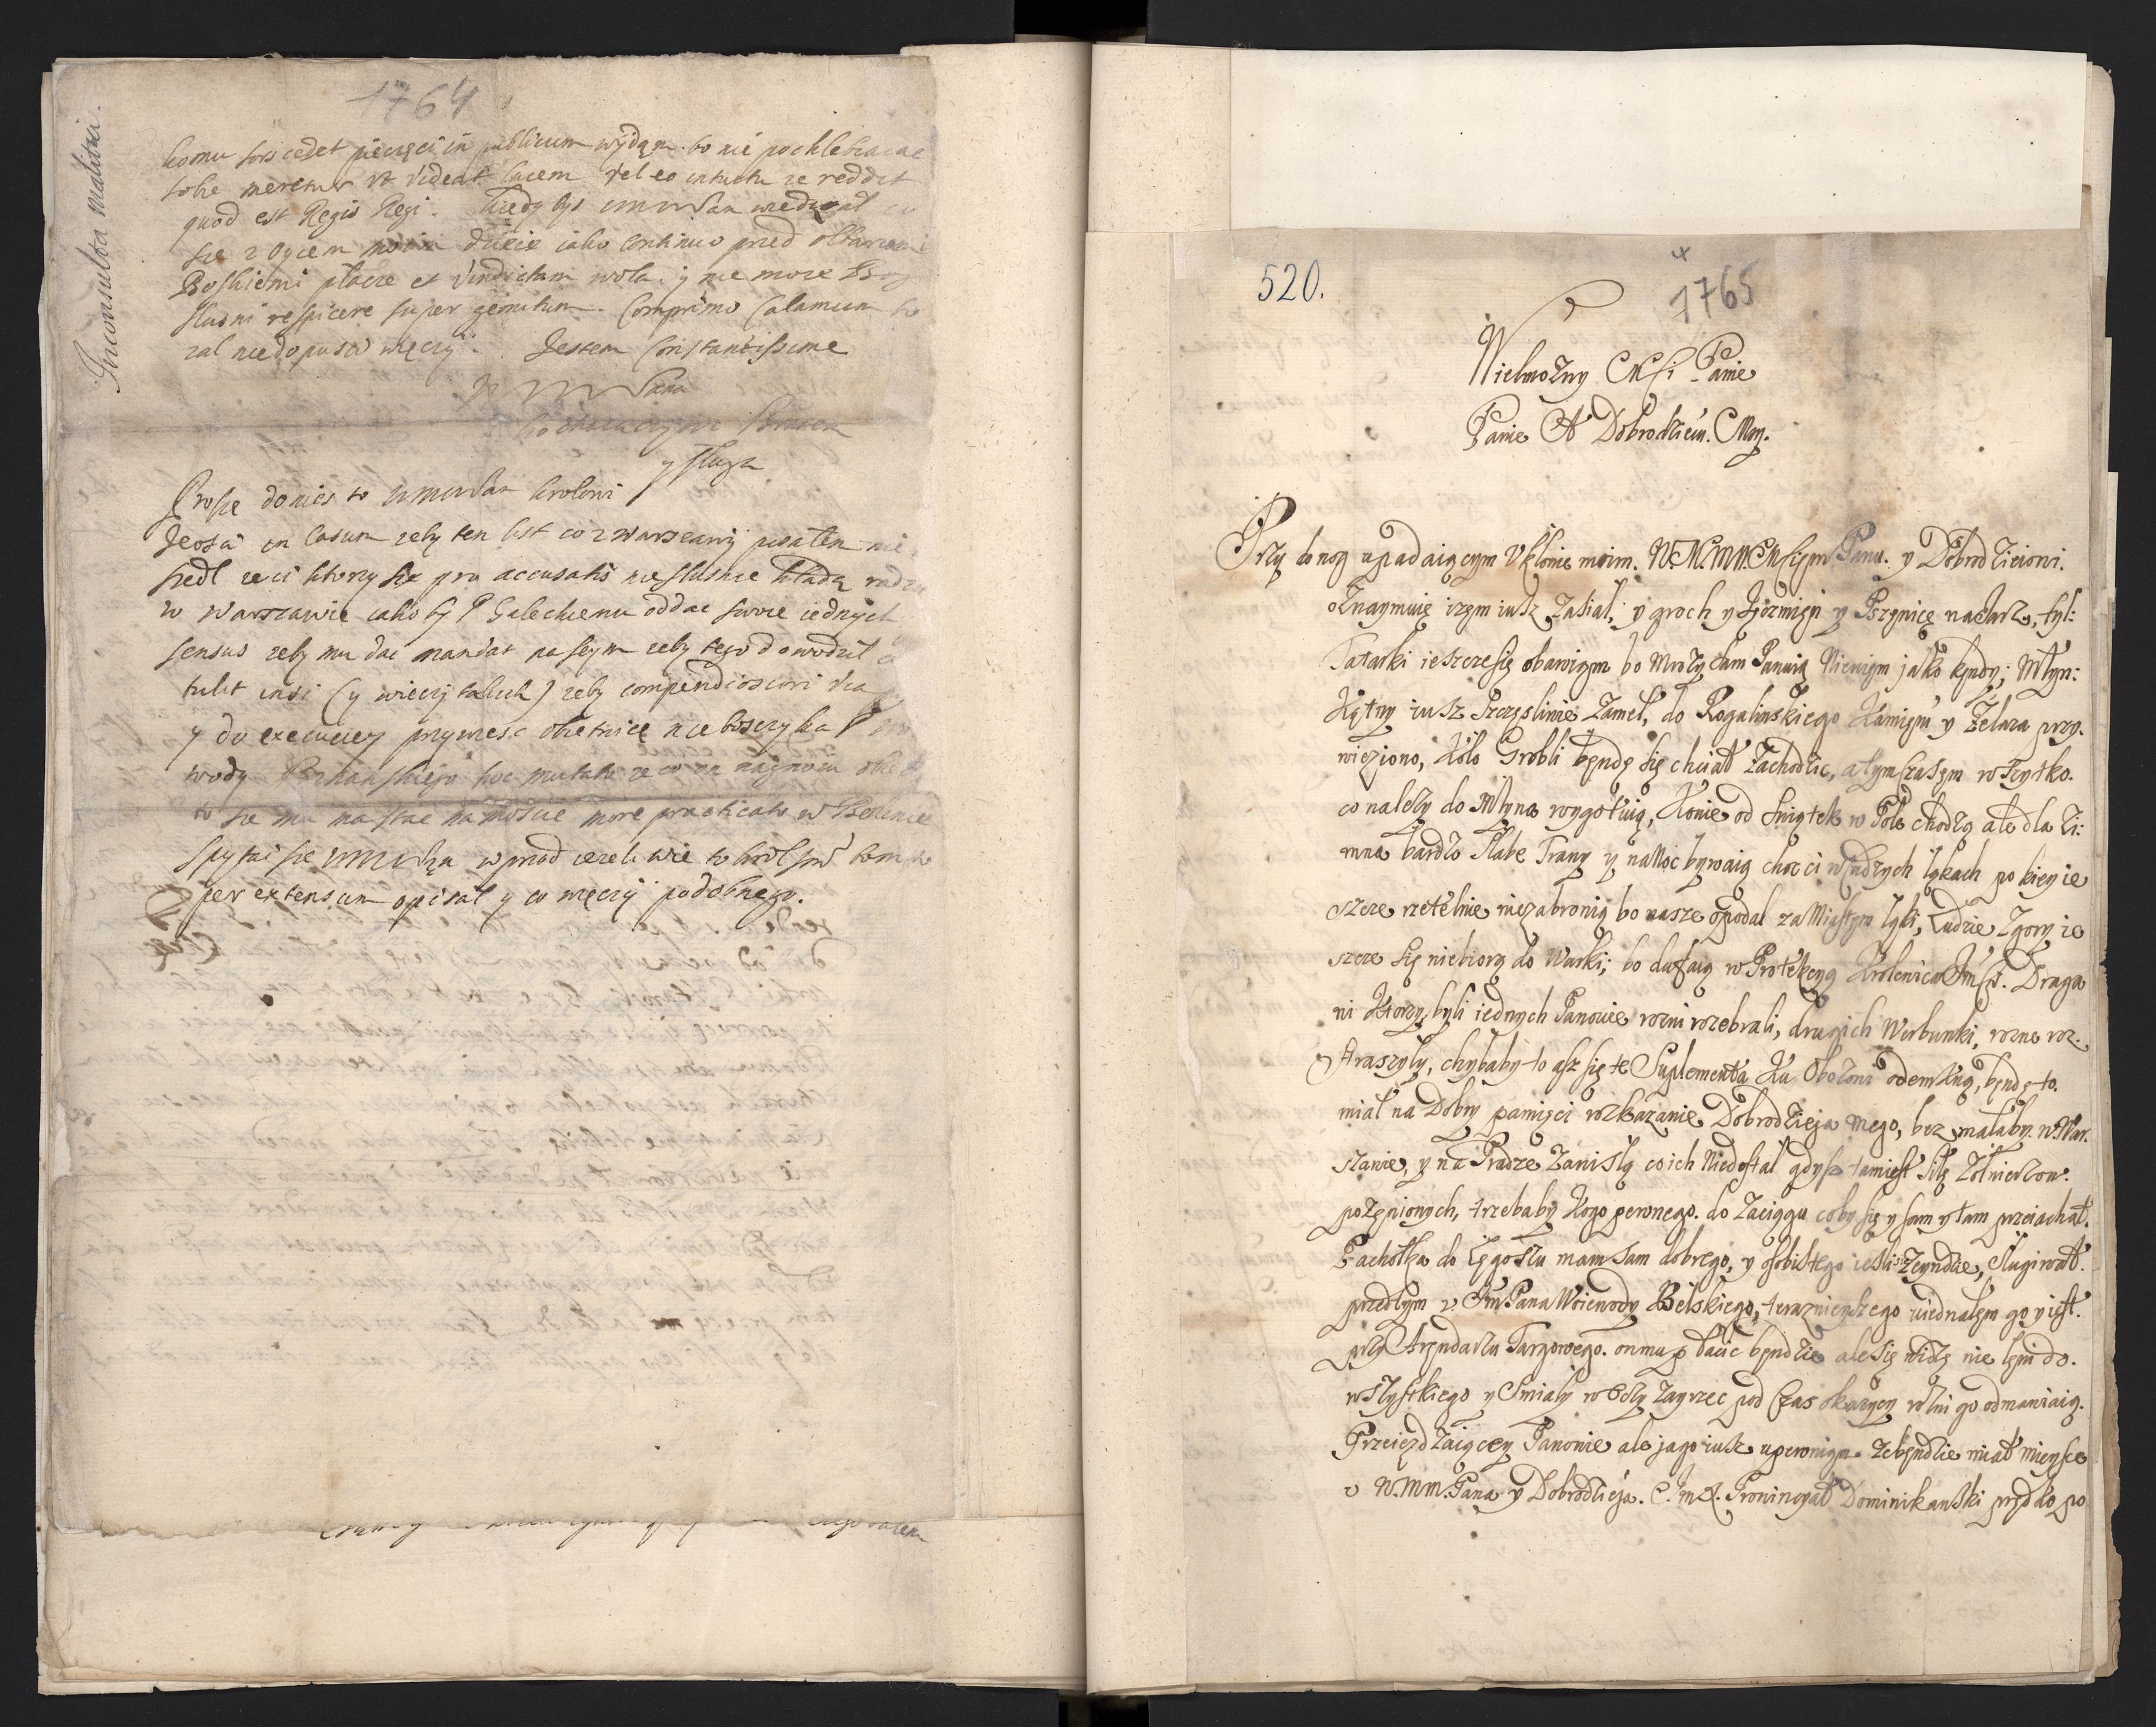 1764
Inconsulta malitiei.
komu sors cedet pieczęci in publicum wyidą. bo nie pochlebiaiąc
sobie meretur ut videat lucem vel eo intuitu ze reddit
quod est Regis Regi. kiedy bys wiedział
sie z Oycem moim dzieie iako continuo przed ołtarzami
Boskiemi płacze et vindictam woła. y nie moze Bog
słusni respicere super gemitum. Comprimo Calamum bo
zal niedopusci więcey. Jestem Constantissime
Pana
kochaiącym Bratem
y sługą
Prosze donies to krolowi
Jeozli in casum zeby ten list co z Warszawy pisałem nie
szedł ze ci ktorzy sie pro accusatis niesłusnie kładą radzą
w Warszawie iakoby P Galeckiemu oddac swoie iednych
sensus zeby mu dac mandat na seym zeby tego dowodził
tulit insi (y więcey takich) zeby compendiosiori via
y do execuciey przywiesc obietnice nieboszczyka P
wody Poznanskiego hoc mutato ze co na
to sie ma na stac na moscie more practicato w
Spytai sie wprod iezeli wie to krol
per extensum opisał y co więcey podobnego.
520.
1765
Wielmozny Msci Panie
Panie A Dobrodzieiu. Moy.
Przy do nog upadaiącym Ukłonie moim. W.M.M.M.Mscipm Panu. y Dobrodzieiowi.
oznaymuię izem iusz Zasiał, y groch y Jęczmięn y Pszęnicę naJarz, tyl:
Tatarki ieszcze się obawięm bo Mrozy tam Panuią Niewięm jako kędy; Młyn:
Kętny iusz Szczęsliwie Zameł, do Rogalinskiego Kamięni y Zelaza przy.
wieziono, Koło Grobli będę się chciał Zachodzic, a tymczasęm wszytko.
co nalezy do Młyna wygotuią, Konie od Swiątek w Pole chodzą ale dla Zi:
mna bardzo Słabe Trawy y na Noc bywaią choc ci w cudzych łąkach po kiey ie
szcze rzetelnie niezabronią bo nasze opodal za Miastęm łąki, Ludzie Zgory ie
szcze się niebiorą do Warki; bo dufaią w Protekcyą Krolewica Jmsci. Draga
ni Ktorzy byli iednych Panowie rozni rozebrali, drugich Werbunki, rozne roz.
straszyły, chybaby to asz się te Suplementa Ku Obozowi odemkną, będę to.
miał na Dobry pamięci rozkazanie Dobrodzieja mego, bez małaby. w War.
szawie, y na Pradze Zawisłą co ich Niedostał gdysz tam iest siłę Zołnierzow.
pozępionych, trzebaby Kogo pewnego. do Zaciągu coby się y sam y tam przeiachał.
Pachołka do Lęgoszu mam Sam dobrego, y osobistego iesli się Zeyndzie, Sługiwał.
przedtym u Jm Pana Woiewody Bełskiego, terazniejszego ziednałęm go y iest.
przy Arędarzu Targowego. on mu płacic będzie ale się widzę nie lęni do.
wszystkiego y Smiały w Oczy Zayrzec pod Czas okazycy rozni go odmawiaią.
Przeięzdzaiący Panowie ale jago iusz upewnięm. Zebędzie miał mieysce
u W.M.M. Pana y Dobrodzieja. Prowincyał Dominikanski prędko po